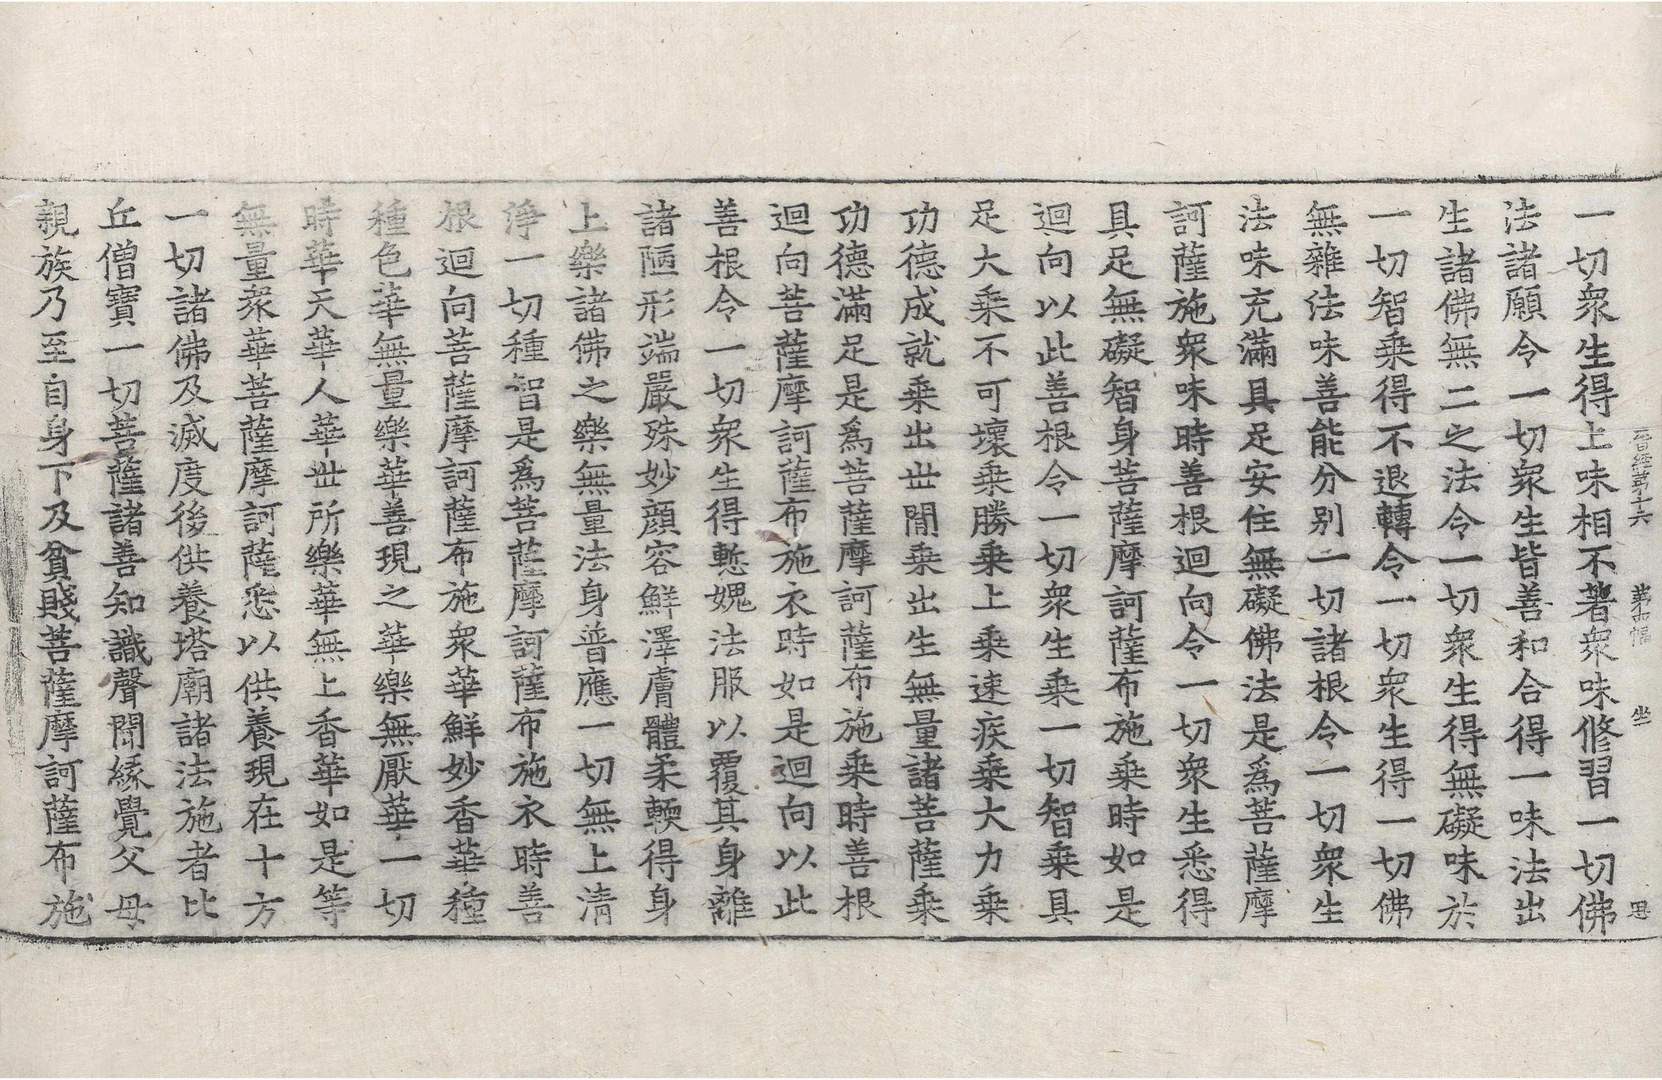 晋經第十六 坐 思
一切衆生得上味相不著衆味修習一切佛
法諸願令一切衆生皆善和合得一味法出
生諸佛無二之法令一切衆生得無礙味於
一切智乗得不退轉令一切衆生得一切佛
無雜法味善能分別一切諸根令一切衆生
法味充滿具足安住無礙佛法是爲菩薩摩
訶薩施衆味時善根迴向令一切衆生悉得
具足無礙智身菩薩摩訶薩布施乗時如是
迴向以此善根令一切衆生乗一切智乗具
足大乗不可壞乗勝乗上乗速疾乗大力乗
功德成就乗出世閒乗出生無量諸菩薩乗
功德滿足是爲菩薩摩訶薩布施乗時善根
迴向菩薩摩訶薩布施衣時如是迴向以此
善根令一切衆生得慙愧法服以覆其身離
諸陋形端嚴殊妙顔容鮮澤膚體柔輭得身
上樂諸佛之樂無量法身普應一切無上清
淨一切種智是爲菩薩摩訶薩布施衣時善
根迴向菩薩摩訶薩布施衆華鮮妙香華種
種色華無量樂華善現之華樂無厭華一切
時華天華人華世所樂華無上香華如是等
無量衆華菩薩摩訶薩悉以供養現在十方
一切諸佛及滅度後供養塔廟諸法施者比
丘僧寶一切菩薩諸善知識聲聞緣覺父母
親族乃至自身下及貧賤菩薩摩訶薩布施